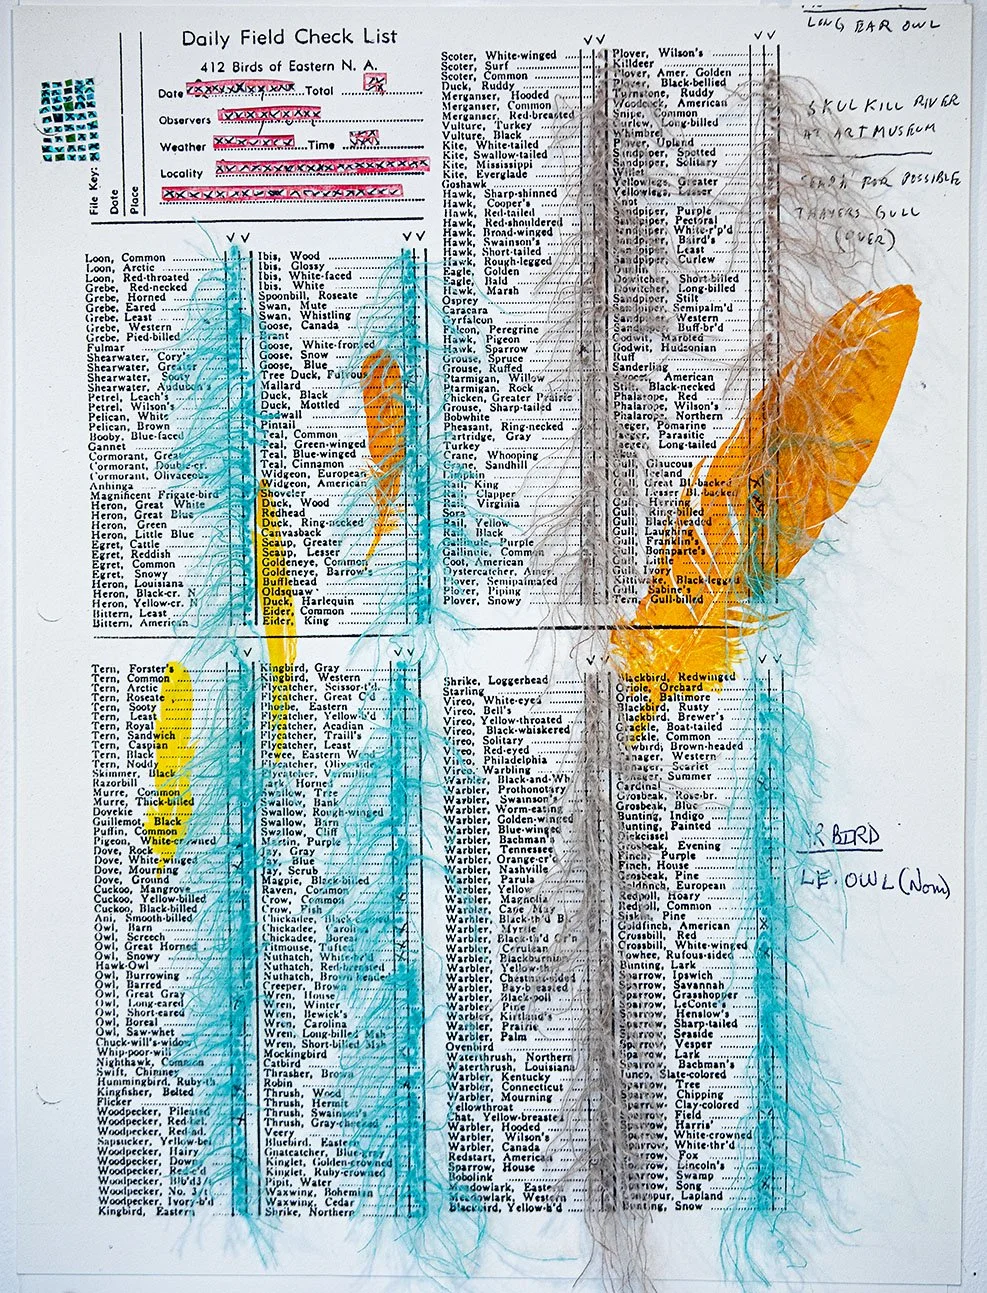 Daily Field Check List
412 Birds of Eastern N. A.
Date Total
Observers
Weather Time
Locality
File Key:
Date
Place
LONG EAR OWL
SKULKILL RIVER
AT ART MUSEUM
FOR POSSIBLE
THAYERS GULL
(OVER)
Loon, Common
Loon, Arctic
Loon, Red-throated
Grebe, Red-necked
Grebe, Horned
Grebe, Eared
Grebe, Least
Grebe, Western
Grebe, Pied-billed
Fulmar
Shearwater, Cory's
Shearwater, Greater
Shearwater, Sooty
Shearwater, Audubon's
Petrel, Leach's
Petrel, Wilson's
Pelican, White
Pelican, Brown
Booby, Blue-faced
Gannet
Cormorant, Great
Cormorant, Double-cr.
Cormorant, Olivaceous
Anhinga
Magnificent Frigate-bird
Heron, Great White
Heron, Great Blue
Heron, Green
Heron, Little Blue
Egret, Cattle
Egret, Reddish
Egret, Common
Egret, Snowy
Heron, Louisiana
Heron, Black-cr. N
Heron, Yellow-cr. N
Bittern, Least
Bittern, American
Ibis, Wood
Ibis, Glossy
Ibis, White-faced
Ibis, White
Spoonbill, Roseate
Swan, Mute
Swan, Whistling
Goose, Canada
Brant
Goose, White-fronted
Goose, Snow
Goose, Blue
Tree Duck, Fulvous
Mallard
Duck, Black
Duck, Mottled
Gadwall
Pintail
Teal, Common
Teal, Green-winged
Teal, Blue-winged
Teal, Cinnamon
Widgeon, European
Widgeon, American
Shoveler
Duck, Wood
Redhead
Duck, Ring-necked
Canvasback
Scaup, Greater
Scaup, Lesser
Goldeneye, Common
Goldeneye, Barrow's
Bufflehead
Oldsquaw
Duck, Harlequin
Eider, Common
Eider, King
Scoter, White-winged
Scoter, Surf
Scoter, Common
Duck, Ruddy
Merganser, Hooded
Merganser, Common
Merganser, Red-breasted
Vulture, Turkey
Vulture, Black
Kite, White-tailed
Kite, Swallow-tailed
Kite, Mississippi
Kite, Everglade
Goshawk
Hawk, Sharp-shinned
Hawk, Cooper's
Hawk, Red-tailed
Hawk, Red-shouldered
Hawk, Broad-winged
Hawk, Swainson's
Hawk, Short-tailed
Hawk, Rough-legged
Eagle, Golden
Eagle, Bald
Hawk, Marsh
Osprey
Caracara
Gyrfalcon
Falcon, Peregrine
Hawk, Pigeon
Hawk, Sparrow
Grouse, Spruce
Grouse, Ruffed
Ptarmigan, Willow
Ptarmigan, Rock
Chicken, Greater Prairie
Grouse, Sharp-tailed
Bobwhite
Pheasant, Ring-necked
Partridge, Gray
Turkey
Crane, Whooping
Crane, Sandhill
Limpkin
Rail, King
Rail, Clapper
Rail, Virginia
Sora
Rail, Yellow
Rail, Black
Purple
Gallinule, Common
Coot, American
Oystercatcher, Am
Plover, Semipalmated
Plover, Piping
Plover, Snowy
Plover, Wilson's
Killdeer
Plover, Amer. Golden
Plover, Black-bellied
Turnstone, Ruddy
Woodcock, American
Snipe, Common
Curlew, Long-billed
Whimbrel
Plover, Upland
Sandpiper, Spotted
Sandpiper, Solitary
Willet
Yellowlegs, Greater
Yellowlegs, Lesser
Knot
Sandpiper, Purple
Sandpiper, Pectoral
Sandpiper, White-r'p'd
Sandpiper, Baird's
Sandpiper, Least
Sandpiper, Curlew
Dunlin
Dowitcher, Short-billed
Dowitcher, Long-billed
Sandpiper, Stilt
Sandpiper, Semipalm'd
Sandpiper, Western
Sandpiper, Buff-br'd
Godwit, Marbled
Godwit, Hudsonian
Ruff
Sanderling
American
Stilt, Black-necked
Phalarope, Red
Phalarope, Wilson's
Phalarope, Northern
Jaeger, Pomarine
Jaeger, Parasitic
Jaeger, Long-tailed
Gull, Glaucous
Gull, Iceland
Gull, Great Bl.-backed
Gull, Lesser Bl.-backed
Gull, Herring
Gull, Ring-billed
Gull, Black-headed
Gull, Laughing
Gull, Franklin's
Gull, Bonaparte's
Gull, Little
Ivory
Kittiwake, Black-legged
Gull, Sabine's
Tern, Gull-billed
Tern, Forster's
Tern, Common
Tern, Arctic
Tern, Roseate
Tern, Sooty
Tern, Least
Tern, Royal
Tern, Sandwich
Tern, Caspian
Tern, Black
Tern, Noddy
Skimmer, Black
Razorbill
Murre, Common
Murre, Thick-billed
Dovekie
Guillemot, Black
Puffin, Common
Pigeon, White-crowned
Dove, Rock
Dove, White-winged
Dove, Mourning
Dove, Ground
Cuckoo, Mangrove
Cuckoo, Yellow-billed
Cuckoo, Black-billed
Ani, Smooth-billed
Owl, Barn
Owl, Screech
Owl, Great Horned
Owl, Snowy
Hawk-Owl
Owl, Burrowing
Owl, Barred
Owl, Great Gray
Owl, Long-eared
Owl, Short-eared
Owl, Boreal
Owl, Saw-whet
Chuck-will's-widow
Whip-poor-will
Nighthawk, Common
Swift, Chimney
Hummingbird, Ruby-th
Kingfisher, Belted
Flicker
Woodpecker, Pileated
Woodpecker, Red-bel.
Woodpecker, Red-hd.
Sapsucker, Yellow-bel
Woodpecker, Hairy
Woodpecker, Down
Woodpecker, Red-c'd
Woodpecker, Blb'd
Woodpecker, No. 3/t
Woodpecker, Ivory-b'd
Kingbird, Eastern
Kingbird, Gray
Kingbird, Western
Flycatcher, Scissor-t'd
Flycatcher, Great C'd
Phoebe, Eastern
Flycatcher, Yellow-b'd
Flycatcher, Acadian
Flycatcher, Traill's
Flycatcher, Least
Pewee, Eastern Wood
Flycatcher, Olive-side
Flycatcher, Vermilio
Lark, Horned
Swallow, Tree
Swallow, Bank
Swallow, Rough-winged
Swallow, Barn
Swallow, Cliff
Martin, Purple
Jay, Gray
Jay, Blue
Jay, Scrub
Magpie, Black-billed
Raven, Common
Crow, Common
Crow, Fish
Chickadee, Black
Chickadee, Caroli
Chickadee, Boreal
Titmouse, Tufted
Nuthatch, White-br'd
Nuthatch, Red-breasted
Nuthatch, Brown-heade
Creeper, Brown
Wren, House
Wren, Winter
Wren, Bewick's
Wren, Carolina
Wren, Long-billed Msh
Wren, Short-billed Msh
Mockingbird
Catbird
Thrasher, Brown
Robin
Thrush, Wood
Thrush, Hermit
Thrush, Swainson's
Thrush, Gray-cheeked
Veery
Bluebird, Eastern
Gnatcatcher, Blue-gray
Kinglet, Golden-crowned
Kinglet, Ruby-crowned
Pipit, Water
Waxwing, Bohemian
Waxwing, Cedar
Shrike, Northern
Shrike, Loggerhead
Starling
Vireo, White-eyed
Vireo, Bell's
Vireo, Yellow-throated
Vireo, Black-whiskered
Vireo, Solitary
Vireo, Red-eyed
Vireo, Philadelphia
Vireo, Warbling
Warbler, Black-and-Wh
Warbler, Prothonotary
Warbler, Swainson's
Warbler, Worm-eating
Warbler, Golden-winged
Warbler, Blue-winged
Warbler, Bachman's
Warbler, Tennessee
Warbler, Orange-cr'
Warbler, Nashville
Warbler, Parula
Warbler, Yellow
Warbler, Magnolia
Warbler, Cape May
Warbler, Black-th'd B
Warbler, Myrtle
Warbler, Black-th'd Gr'n
Warbler, Cerulean
Warbler, Blackburnian
Warbler, Yellow-th
Warbler, Chestnut-sided
Warbler, Bay-breasted
Warbler, Black-poll
Warbler, Pine
Warbler, Kirtland's
Warbler, Prairie
Warbler, Palm
Ovenbird
Waterthrush, Northern
Waterthrush, Louisiana
Warbler, Kentucky
Warbler, Connecticut
Warbler, Mourning
Yellowthroat
Chat, Yellow-breasted
Warbler, Hooded
Warbler, Wilson's
Warbler, Canada
Redstart, American
Sparrow, House
Bobolink
Meadowlark, Eastern
Meadowlark, Western
Blackbird, Yellow-h'd
Blackbird, Redwinged
Oriole, Orchard
Oriole, Baltimore
Blackbird, Rusty
Blackbird, Brewer's
Grackle, Boat-tailed
Grackle, Common
Cowbird, Brown-headed
Tanager, Western
Tanager, Scarlet
Tanager, Summer
Cardinal
Grosbeak, Rose-br.
Grosbeak, Blue
Bunting, Indigo
Bunting, Painted
Dickcissel
Grosbeak, Evening
Finch, Purple
Finch, House
Grosbeak, Pine
Goldfinch, European
Redpoll, Hoary
Redpoll, Common
Siskin, Pine
Goldfinch, American
Crossbill, Red
Crossbill, White-winged
Towhee, Rufous-sided
Bunting, Lark
Sparrow, Ipswich
Sparrow, Savannah
Sparrow, Grasshopper
Sparrow, LeConte's
Sparrow, Henslow's
Sparrow, Sharp-tailed
Sparrow, Seaside
Sparrow, Vesper
Sparrow, Lark
Sparrow, Bachman's
Junco, Slate-colored
Sparrow, Tree
Sparrow, Chipping
Sparrow, Clay-colored
Sparrow, Field
Sparrow, Harris'
Sparrow, White-crowned
Sparrow, White-thr'd
Sparrow, Fox
Sparrow, Lincoln's
Sparrow, Swamp
Sparrow, Song
Longspur, Lapland
Bunting, Snow
R BIRD
L.E. OWL (Nom)